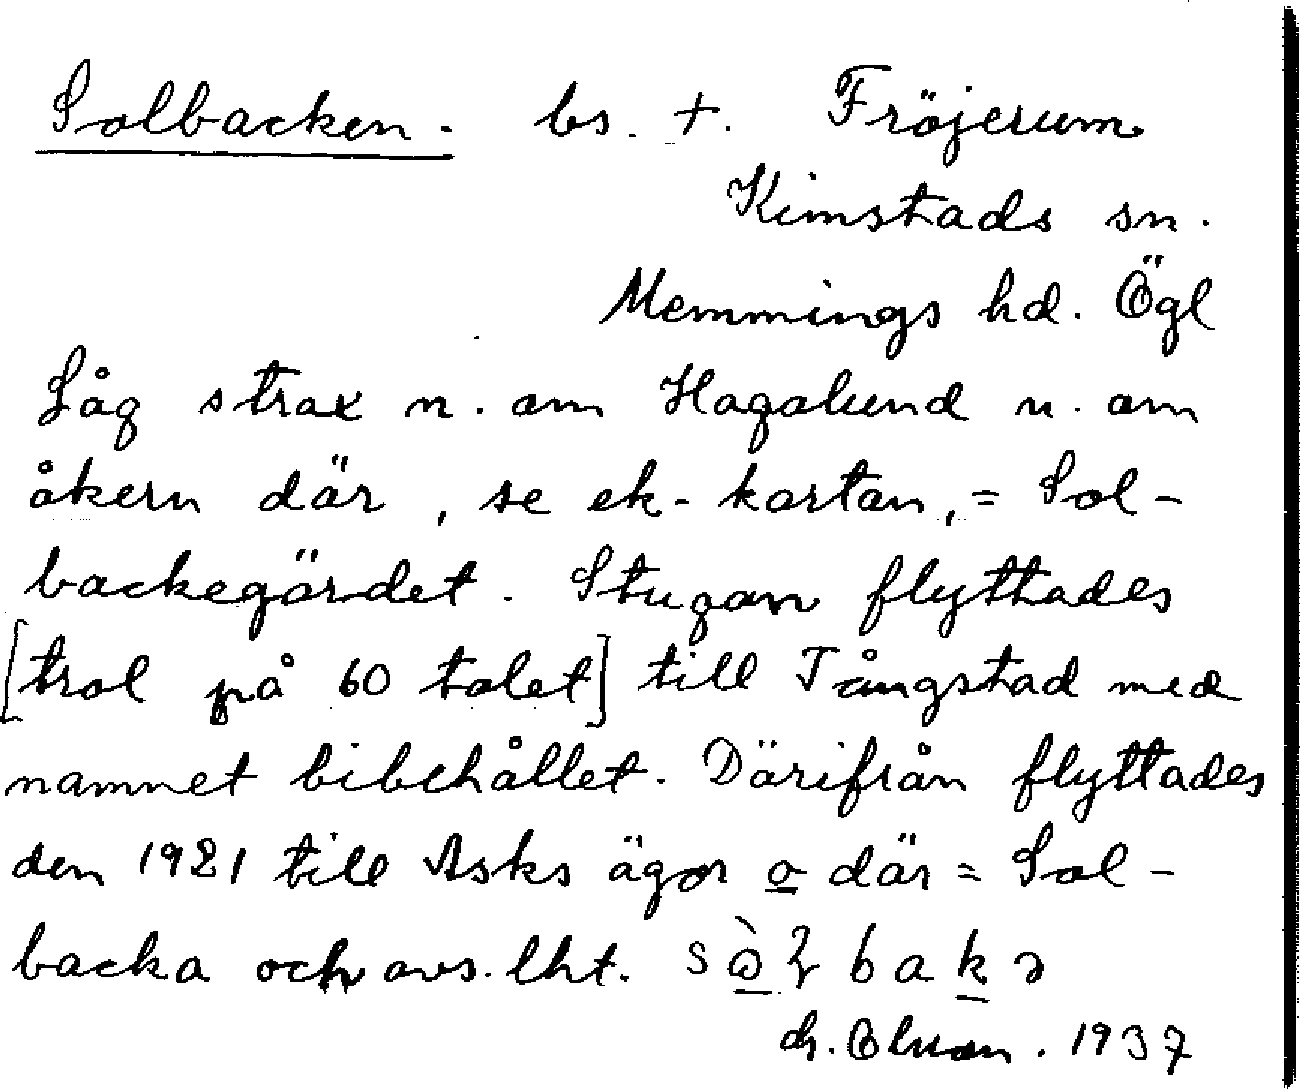 Solbacken. bs. +. Fröjerum
Kimstads sn.
Memmings hd. Ögl
Låg strax n. om Hagalund n. om
åkern där, se ek-kartan, = Sol-
backegärdet. Stugan flyttades
[trol på 60 talet] till Tångstad med
namnet bibehållet. Därifrån flyttades
den 1921 till Asks ägor o där = Sol-
backa och avs. lht.
1937